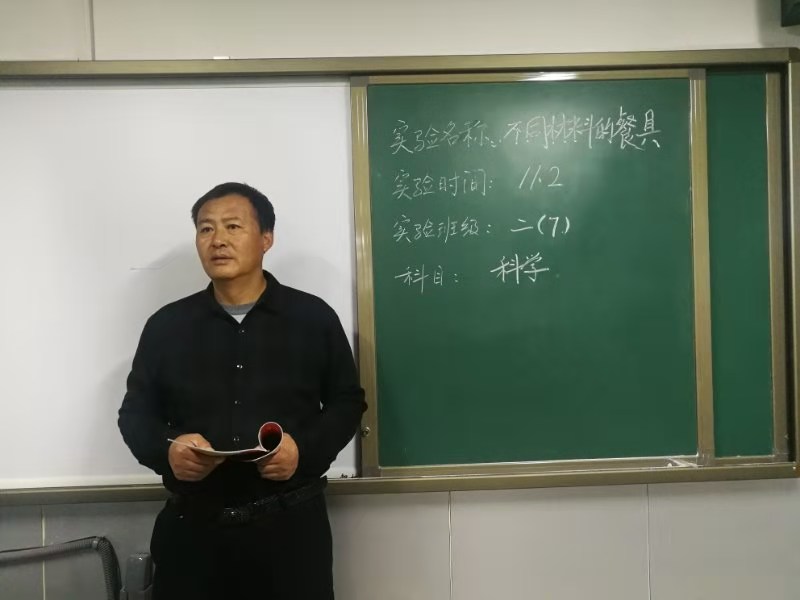 实验名称：不同材料的餐具
实验时间：11.2
实验班级：二(7)
科目：科学